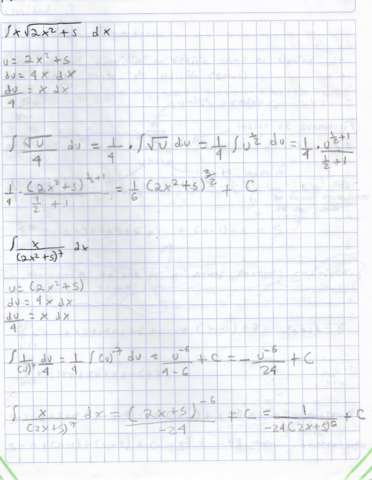 ∫x√(2x²+5) dx
u = 2x²+5
du = 4x dx
du/4 = x dx
∫ √u/4 du = 1/4 · ∫√u du = 1/4 ∫u^(1/2) du = 1/4 · u^(1/2+1)/(1/2+1)
1/4 · (2x²+5)^(1/2+1)/(1/2+1) = 1/6 (2x²+5)^(3/2) + C
∫ x/(2x²+5)^7 dx
u = (2x²+5)
du = 4x dx
du/4 = x dx
∫ 1/(u)^7 du/4 = 1/4 ∫(u)^-7 du = u^-6/4-6 + C = - u^-6/24 + C
∫ x/(2x+5)^7 dx = (2x+5)^-6/-24 + C = 1/-24(2x+5)^6 + C